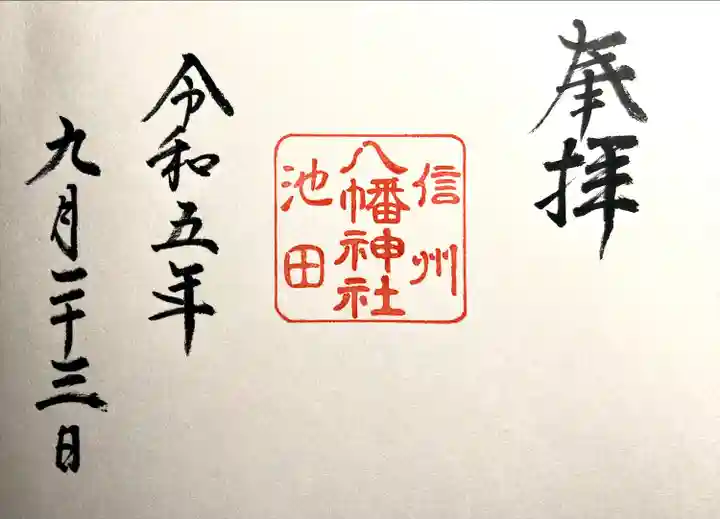 奉拝
信州
八幡神社
池田
令和五年
九月二十三日